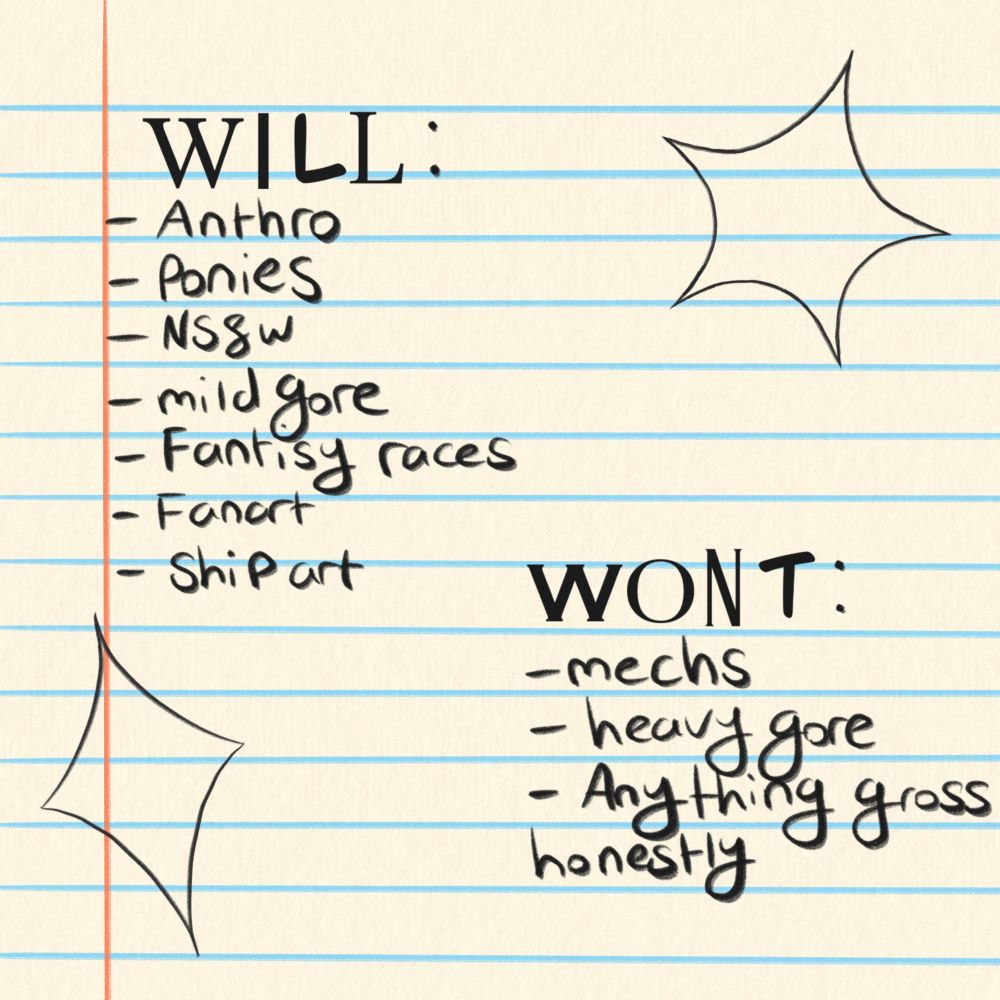 WILL:
- Anthro
- Ponies
- NS&W
- mild gore
- Fantisy races
- Fanart
- Ship art
WONT:
- mechs
- heavy gore
- Anything gross
honestly